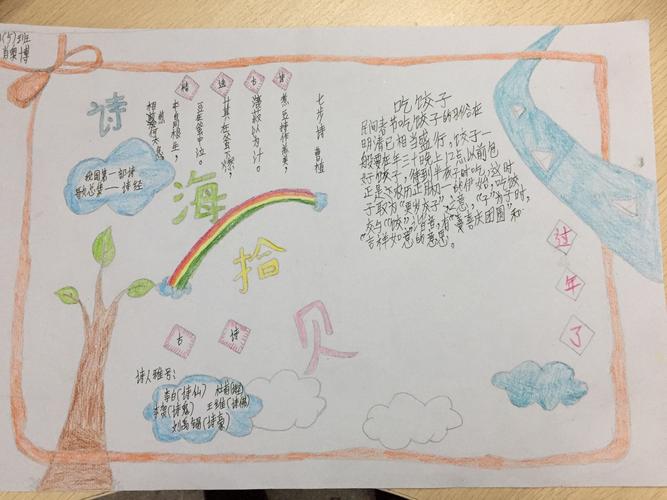 1(5)班
诗海拾贝
精选古诗
七步诗 曹植
煮豆持作羹,
漉菽以为汁。
萁在釜下燃,
豆在釜中泣。
本自同根生,
相煎何太急
我国第一部诗
歌总集——诗经
古诗
诗人雅号:
李白(诗仙) 杜甫(诗圣)
李贺(诗鬼) 王维(诗佛)
刘禹锡(诗豪)
吃饺子
民间春节吃饺子的习俗在
明清已相当盛行,饺子一
般要在年三十晚上12点以前包
好饺子,待到半夜子时吃,这时
正是农历正月初一的伊始,吃饺
子取有"更岁交子"之意,"子"为子时,
交与"饺"谐音,有"喜庆团圆"和
"吉祥如意"的意思。
过年了